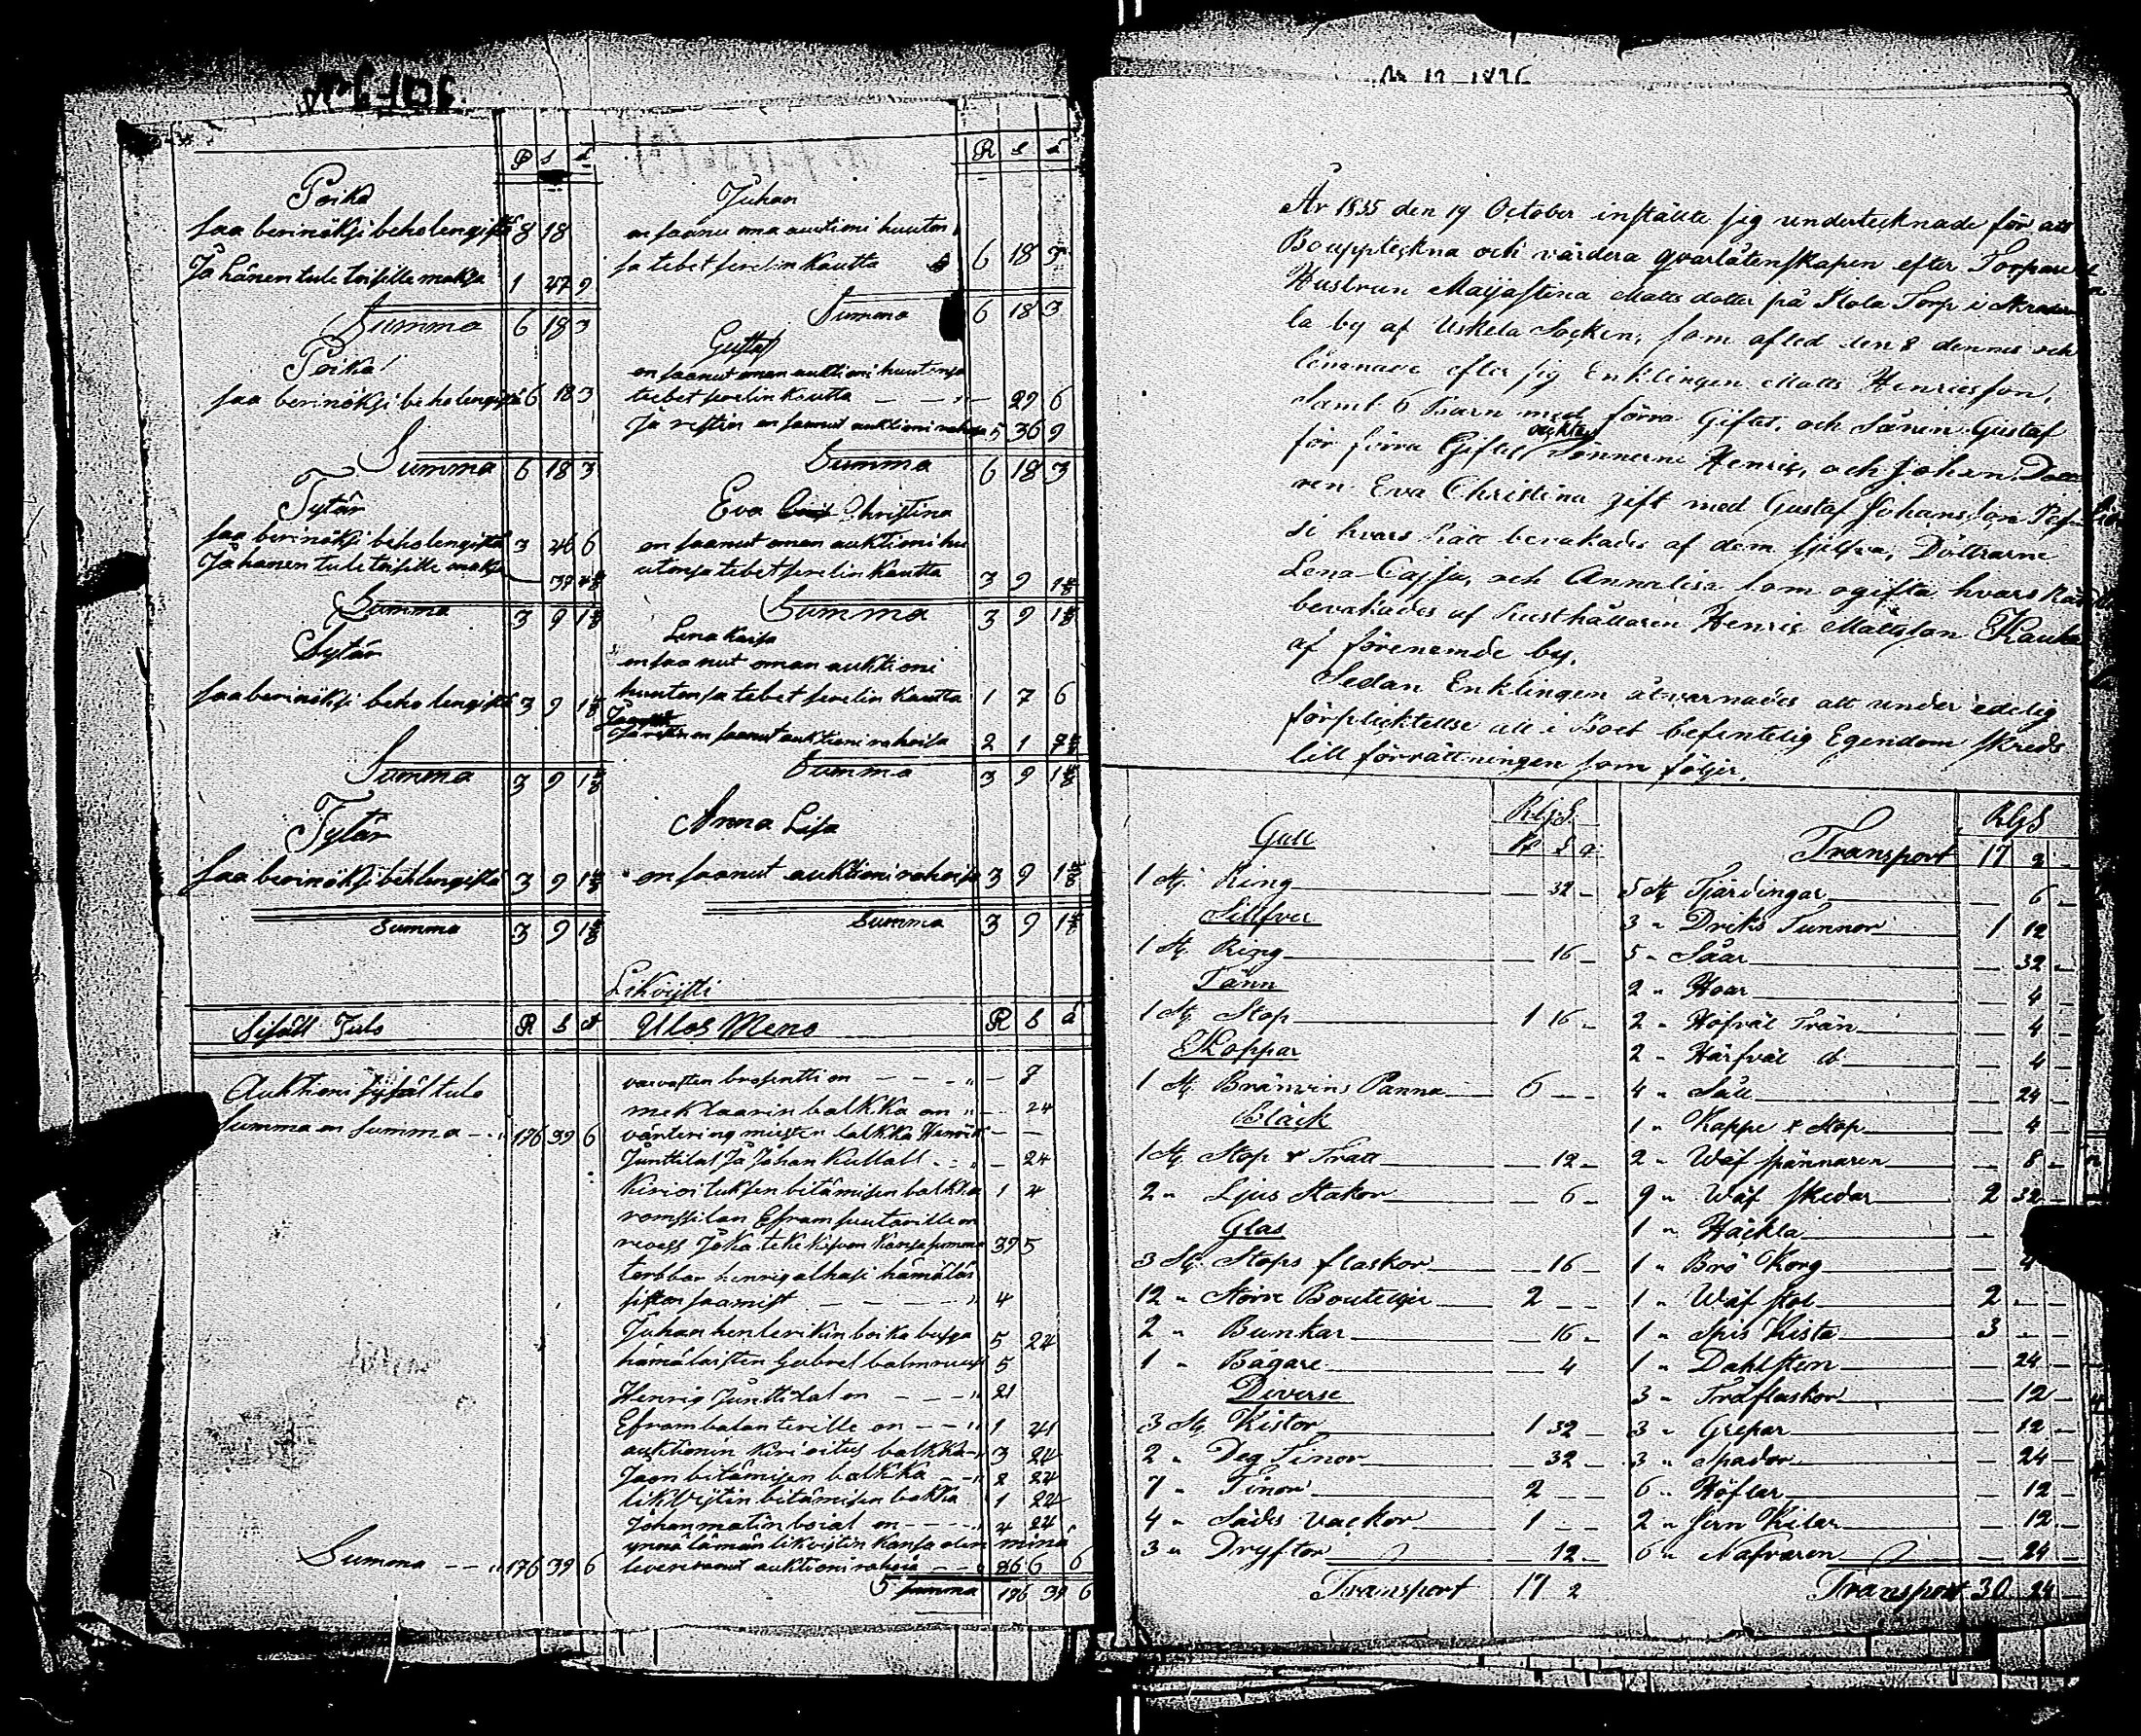 No 6 1836.
R S d
Poika
saa berinöksi beholengista 8 18
Ja hänen tule toisille maksa 1 47 9
Summa 6 18 3
Poika
saa berinöksi beholengista 6 18 3
Summa 6 18 3
Tytär
saa berinöksi beholengista 3 46 6
Ja hänen tule toisille maksa
Summa 3 9 1
Tytär
saa berinöksi beholengista 3 9 1
Summa 3 9 1
Tytär
saa berinöksi beholengista 3 9 1
Summa 3 9 1
R S d
Juhan
on saanu oma auctioni huuton
sa tebet serelin kautta 6 18 3
Summa 6 18 3
Gustaf
on saanut oman auktioni huutonsa
tebet serelin kautta 29 6
Ja restin on saanut auktioni rahoisa 5 36 9
Summa 6 18 3
Eva Christina
on saanut oman auktioni hu
utonsa tebet serelin kautta 3 9 1
Summa 3 9 1
Lena Kaisa
on saanut oman auktioni
huutonsa tebet serelin kautta 1 7 6
Ja restin on saanut auktioni rahoisa 2 1
Summa 3 9 1
Anna Lisa
on saanut auktioni rahoisa 3 9 1
Summa 3 9 1
Likvijtti
Sisäll Tulo R S d Ulos Meno R S d
Auktioni sisäl tulo
Summa on Summa 176 39 6
Summa 176 39 6
vaivasten brosentti on 7
meklaarin balkka on 24
värtering miesten balkka Henrik
Junttilal Ja Johan Kullall 24
Kirioituksen bitämisen balkka 1 4
romssilan Efram suutarille on
revers Joka teke Kasvon Kansa summa 39 5
torbbar henrig alhasi hämälä
sistan saamist 4
Juhan henlerikin boika bussa 5 24
hämälaisten Gabrel balmruus 5
Henrig Junttilal on 21
Efram balanterille on 1 24
auktionin kirioitus balkka 3 24
Jaon bitämisen balkka 2 24
likvijtin bitämisen bakka 1 24
Johan matin boial on 4 24
ynnä tämän likvijtin kansa olen minä
levererannut auktioni rahoia 86 6 6
Summa 176 39 6
No 12 1836
År 1835 den 19 October instälte sig undertecknade för att
Bouppteckna och värdera qvarlåtenskapen efter Torpare
Hustrun Maijastina Matts dotter på Kola Torp i
la by af Uskela Socken, som afled den 8 dennes och
lämnade efter sig Enklingen Matts Henricsson,
samt 6 Barn med förra Giftet, och Sönen Gustaf
för förra Giftet Sönnerne Henric, och Johan
ren Eva Christina gift med Gustaf Johansson
si hvars Rätt bevakades af dem sjelfva, Döttrarne
Lena Cajsa, och Annalisa som ogifta hvars Rätt
bevakades af Rusthållaren Henric Mattsson
af förenemde by.
Sedan Enklingen åtvarnades att under edelig
förplicktellse all i Boet befintelig Egendom skreds
till förrättningen som följer.
RbgS
Gull
1 St. Ring 32
Sillfver
1 St. Ring 16
Tänn
1 St. Stop 1 16
Koppar
1 St. Bränvins Panna 6
Bläck
1 St. Stop & Tratt 12
2 " Ljus Stakor 6
Glas
3 St. Stops flaskor 16
12 " Större Boutelljer 2
2 " Bunkar 16
1 " Bägare 4
Diverse
3 St. Kistor 1 32
2 " Deg Tinor 32
7 " Tinor 2
4 " Säds vackor 1
3 " Dryftor 12
Transport 17 2
RbgS
Transport 17 2
5 St Fjärdingar 6
3 " Dricks Tunnor 1 12
5 " Såar 32
2 " Hoar 4
2 " Höfväl Trän 4
2 " Härfväl d: 4
4 " Såll 24
1 " Kappe & Stop 4
2 " Wäf spännaren 8
9 " Wäf skedar 2 32
1 " Häckla
1 " Brö Korg 4
1 " Wäf stol 2
1 " Spis Kista 3
1 " Dahlsten 24
3 " Träflaskor 12
3 " Grepar 12
3 " Spador 24
6 " Höflar 12
2 " Jern Kilar 12
6 " Nafvaren 24
Transport 30 24